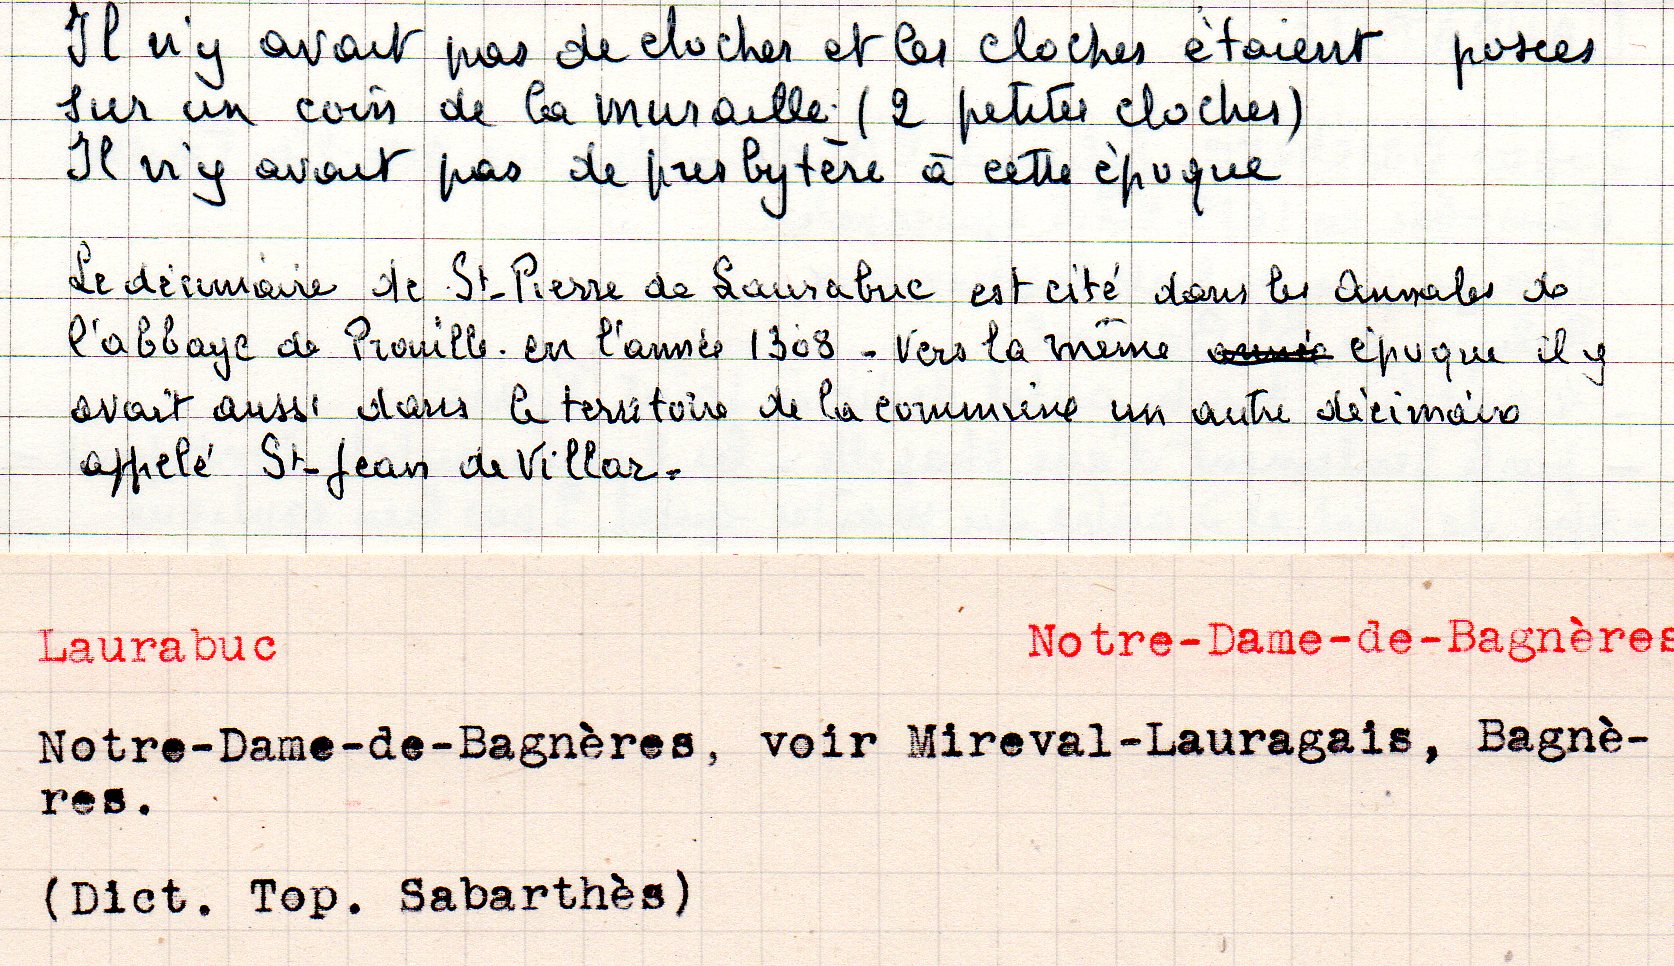 Il n'y avait pas de clocher et les cloches étaient posées
sur un coin de la muraille (2 petites cloches)
Il n'y avait pas de presbytère à cette époque
Le décimaire de St-Pierre de Laurabuc est cité dans les Annales de
l'abbaye de Prouille. en l'année 1308 - Vers la même année époque il y
avait aussi dans le territoire de la commune un autre décimaire
appelé St-Jean de Villar.
Laurabuc Notre-Dame-de-Bagnères
Notre-Dame-de-Bagnères, voir Mireval-Lauragais, Bagnè-
res.
(Dict. Top. Sabarthès)